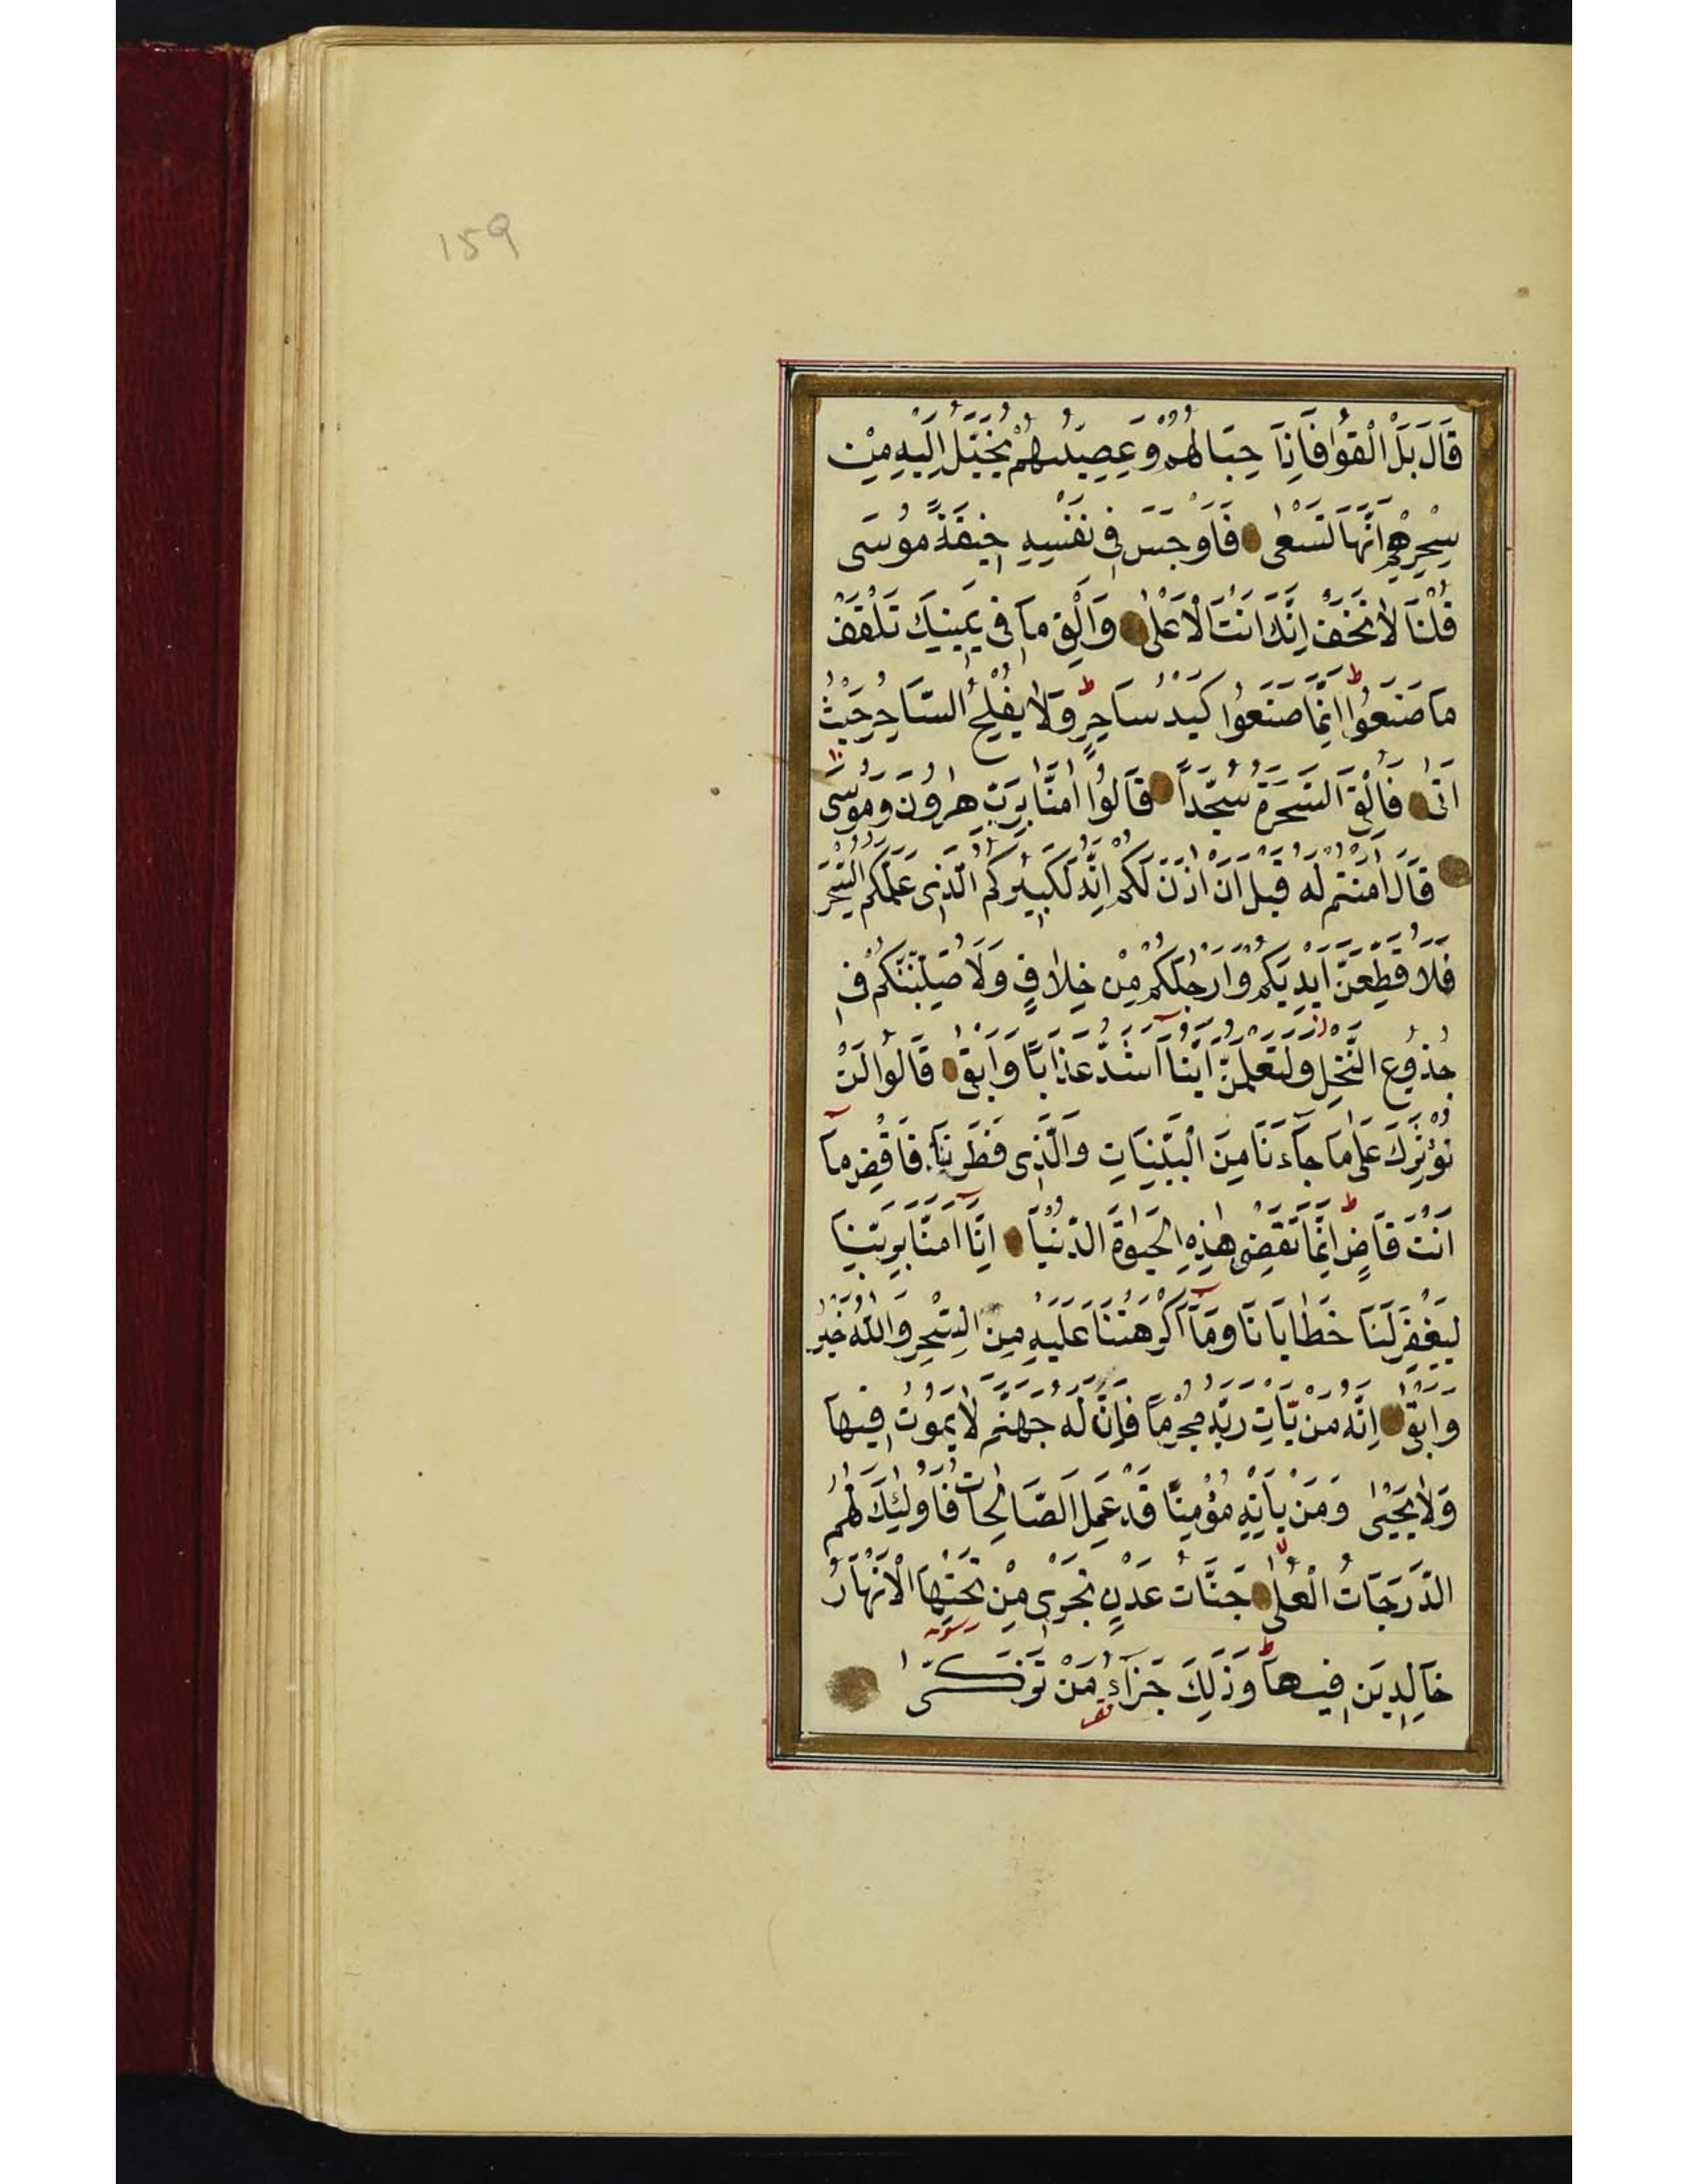 159
قَالَ بَلْ اَلْقُوْا فَاِذَا حِبَالُهُمْ وَعِصِيُّهُمْ يُخَيَّلُ اِلَيْهِ مِنْ
سِحْرِهِمْ اَنَّهَا تَسْعٰى فَاَوْجَسَ فِى نَفْسِهِ خِيفَةً مُوسَى
قُلْنَا لَا تَخَفْ اِنَّكَ اَنْتَ الْاَعْلٰى وَاَلْقِ مَا فِى يَمِينِكَ تَلْقَفْ
مَا صَنَعُوا اِنَّمَا صَنَعُوا كَيْدُ سَاحِرٍ وَلَا يُفْلِحُ السَّاحِرُ حَيْثُ
اَتٰى فَاُلْقِىَ السَّحَرَةُ سُجَّدًا قَالُوا اٰمَنَّا بِرَبِّ هٰرُونَ وَمُوسٰى
قَالَ اٰمَنْتُمْ لَهُ قَبْلَ اَنْ اٰذَنَ لَكُمْ اِنَّهُ لَكَبِيرُكُمُ الَّذِى عَلَّمَكُمُ السِّحْرَ
فَلَاُقَطِّعَنَّ اَيْدِيَكُمْ وَاَرْجُلَكُمْ مِنْ خِلَافٍ وَلَاُصَلِّبَنَّكُمْ فِى
جُذُوعِ النَّخْلِ وَلَتَعْلَمُنَّ اَيُّنَا اَشَدُّ عَذَابًا وَاَبْقٰى قَالُوا لَنْ
نُؤْثِرَكَ عَلٰى مَا جَاءَنَا مِنَ الْبَيِّنَاتِ وَالَّذِى فَطَرَنَا فَاقْضِ مَا
اَنْتَ قَاضٍ اِنَّمَا تَقْضِى هٰذِهِ الْحَيٰوةَ الدُّنْيَا اِنَّا اٰمَنَّا بِرَبِّنَا
لِيَغْفِرَ لَنَا خَطَايَانَا وَمَا اَكْرَهْتَنَا عَلَيْهِ مِنَ السِّحْرِ وَاللّٰهُ خَيْرٌ
وَاَبْقٰى اِنَّهُ مَنْ يَاْتِ رَبَّهُ مُجْرِمًا فَاِنَّ لَهُ جَهَنَّمَ لَا يَمُوتُ فِيهَا
وَلَا يَحْيٰى وَمَنْ يَاْتِهِ مُؤْمِنًا قَدْ عَمِلَ الصَّالِحَاتِ فَاُولٰئِكَ لَهُمُ
الدَّرَجَاتُ الْعُلٰى جَنَّاتُ عَدْنٍ تَجْرِى مِنْ تَحْتِهَا الْاَنْهَارُ
خَالِدِينَ فِيهَا وَذٰلِكَ جَزَاءُ مَنْ تَزَكّٰى